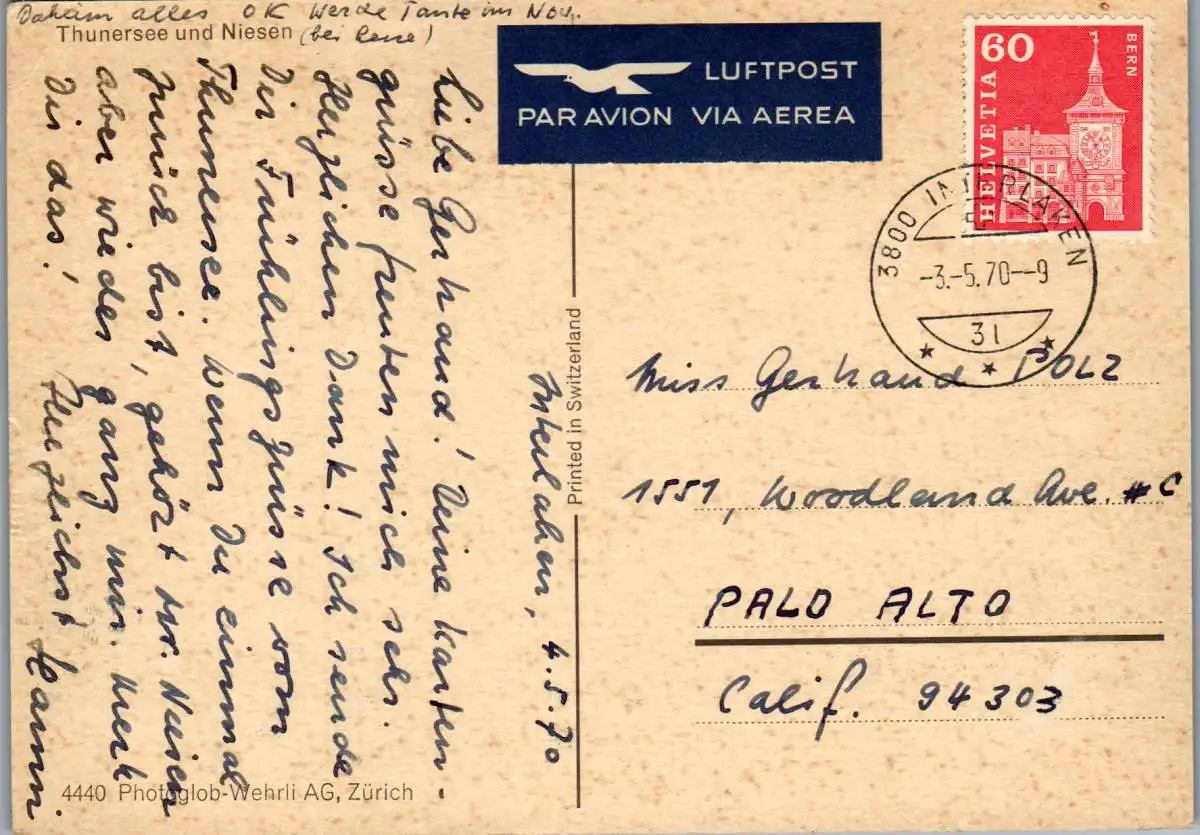 Daheim alles OK Werde Tante im Nov.
(bei Rene)
Thunersee und Niesen
LUFTPOST
PAR AVION VIA AEREA
60
BERN
HELVETIA
3800 INTERLAKEN
-3.-5.70--9
31
Interlaken, 4.5.70
Liebe Gerhaud! Deine Karten-
grüsse freuten mich sehr.
Herzlichen Dank! Ich sende
Dir Frühlingsgrüsse vom
Thunersee. Wenn Du einmal
zurück bist, gehört der Niesen
aber wieder ganz mir. Merk
Dir das! Herzlichst Hanni.
Printed in Switzerland
Miss Gerhaud POLZ
1551, Woodland Ave. #C
PALO ALTO
Calif. 94303
4440 Photoglob-Wehrli AG, Zürich